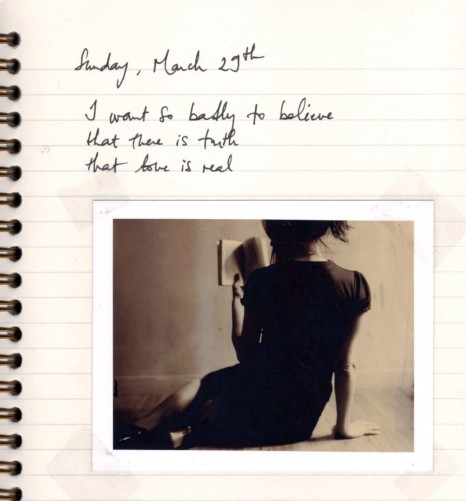 Sunday, March 29th
I want so badly to believe
that there is truth
that love is real